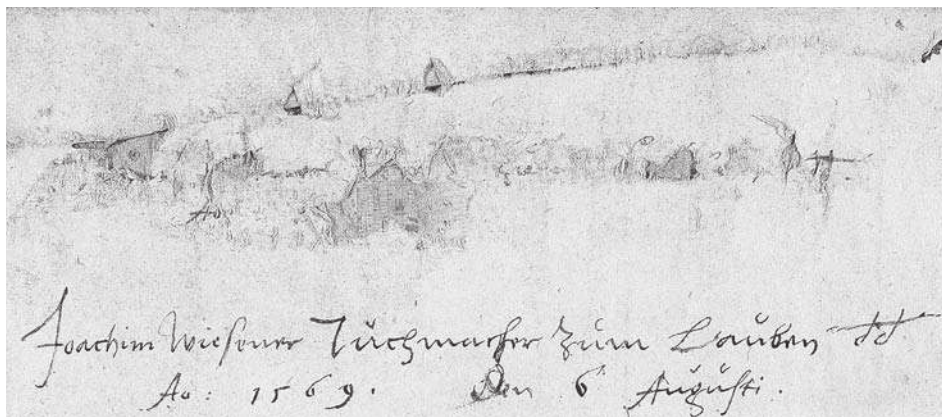 Ao
Joachim Wiesener Tuchmacher Zum Lauben dd.
Ao: 1569. Den 6 Augusti.